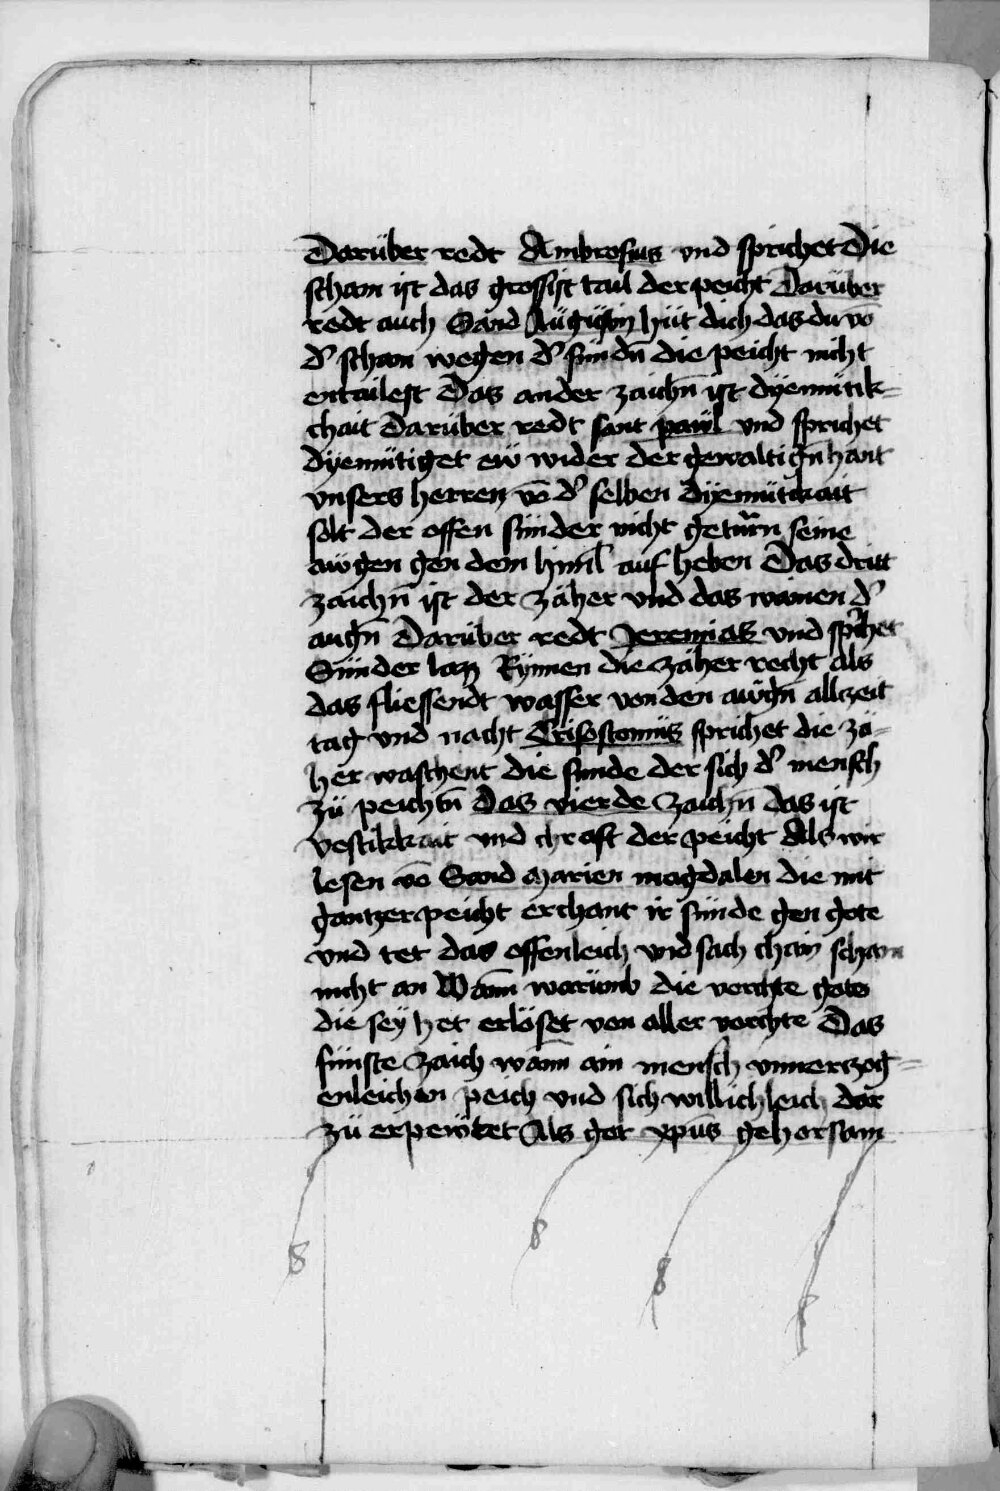 Darüber redt Ambrosius vnd sprichet Die
scham ist das grossist tail der peicht Darüber
redt auch Sand Augustin hüt dich das du võ
d' scham wegen d' sundñ die peicht nicht
entailest Das ander zaichñ ist dyemütik=
chait Darüber redt sant paul vnd sprichet
dyemütiget ew wider der gewaltigñ hant
vnsers herren võ d' selben dyemütikait
solt der offen sünder nicht getürrn seine
awgen gen dem himl auf heben Das dritt
zaichñ ist der zäher vnd das wainen d'
augñ Darüber redt Jeremias vnd sprichet
Sünder laz Rynnen die zäher recht als
das fliessendt wasser von den awgñ allczeit
tag vnd nacht Crisostomus sprichet die zä=
her waschent die sunde der sich d' mensch
zü peichtñ Das vierde zaichñ das ist
vestikkait vnd chraft der peicht Als wir
lesen võ Sand Marien magdalen die mit
gantzer peicht erchant ir sünde gen gote
vnd tet das offenleich vnd sach chain scham
nicht an Wann warumb die vorchte gotes
die sey het erlöset von aller vorchte Das
fünfte zaich wann ain mensch vnuerczog=
enleichen peich vnd sich willichleich dar
zü erpewtet Als got xpus gehorsam